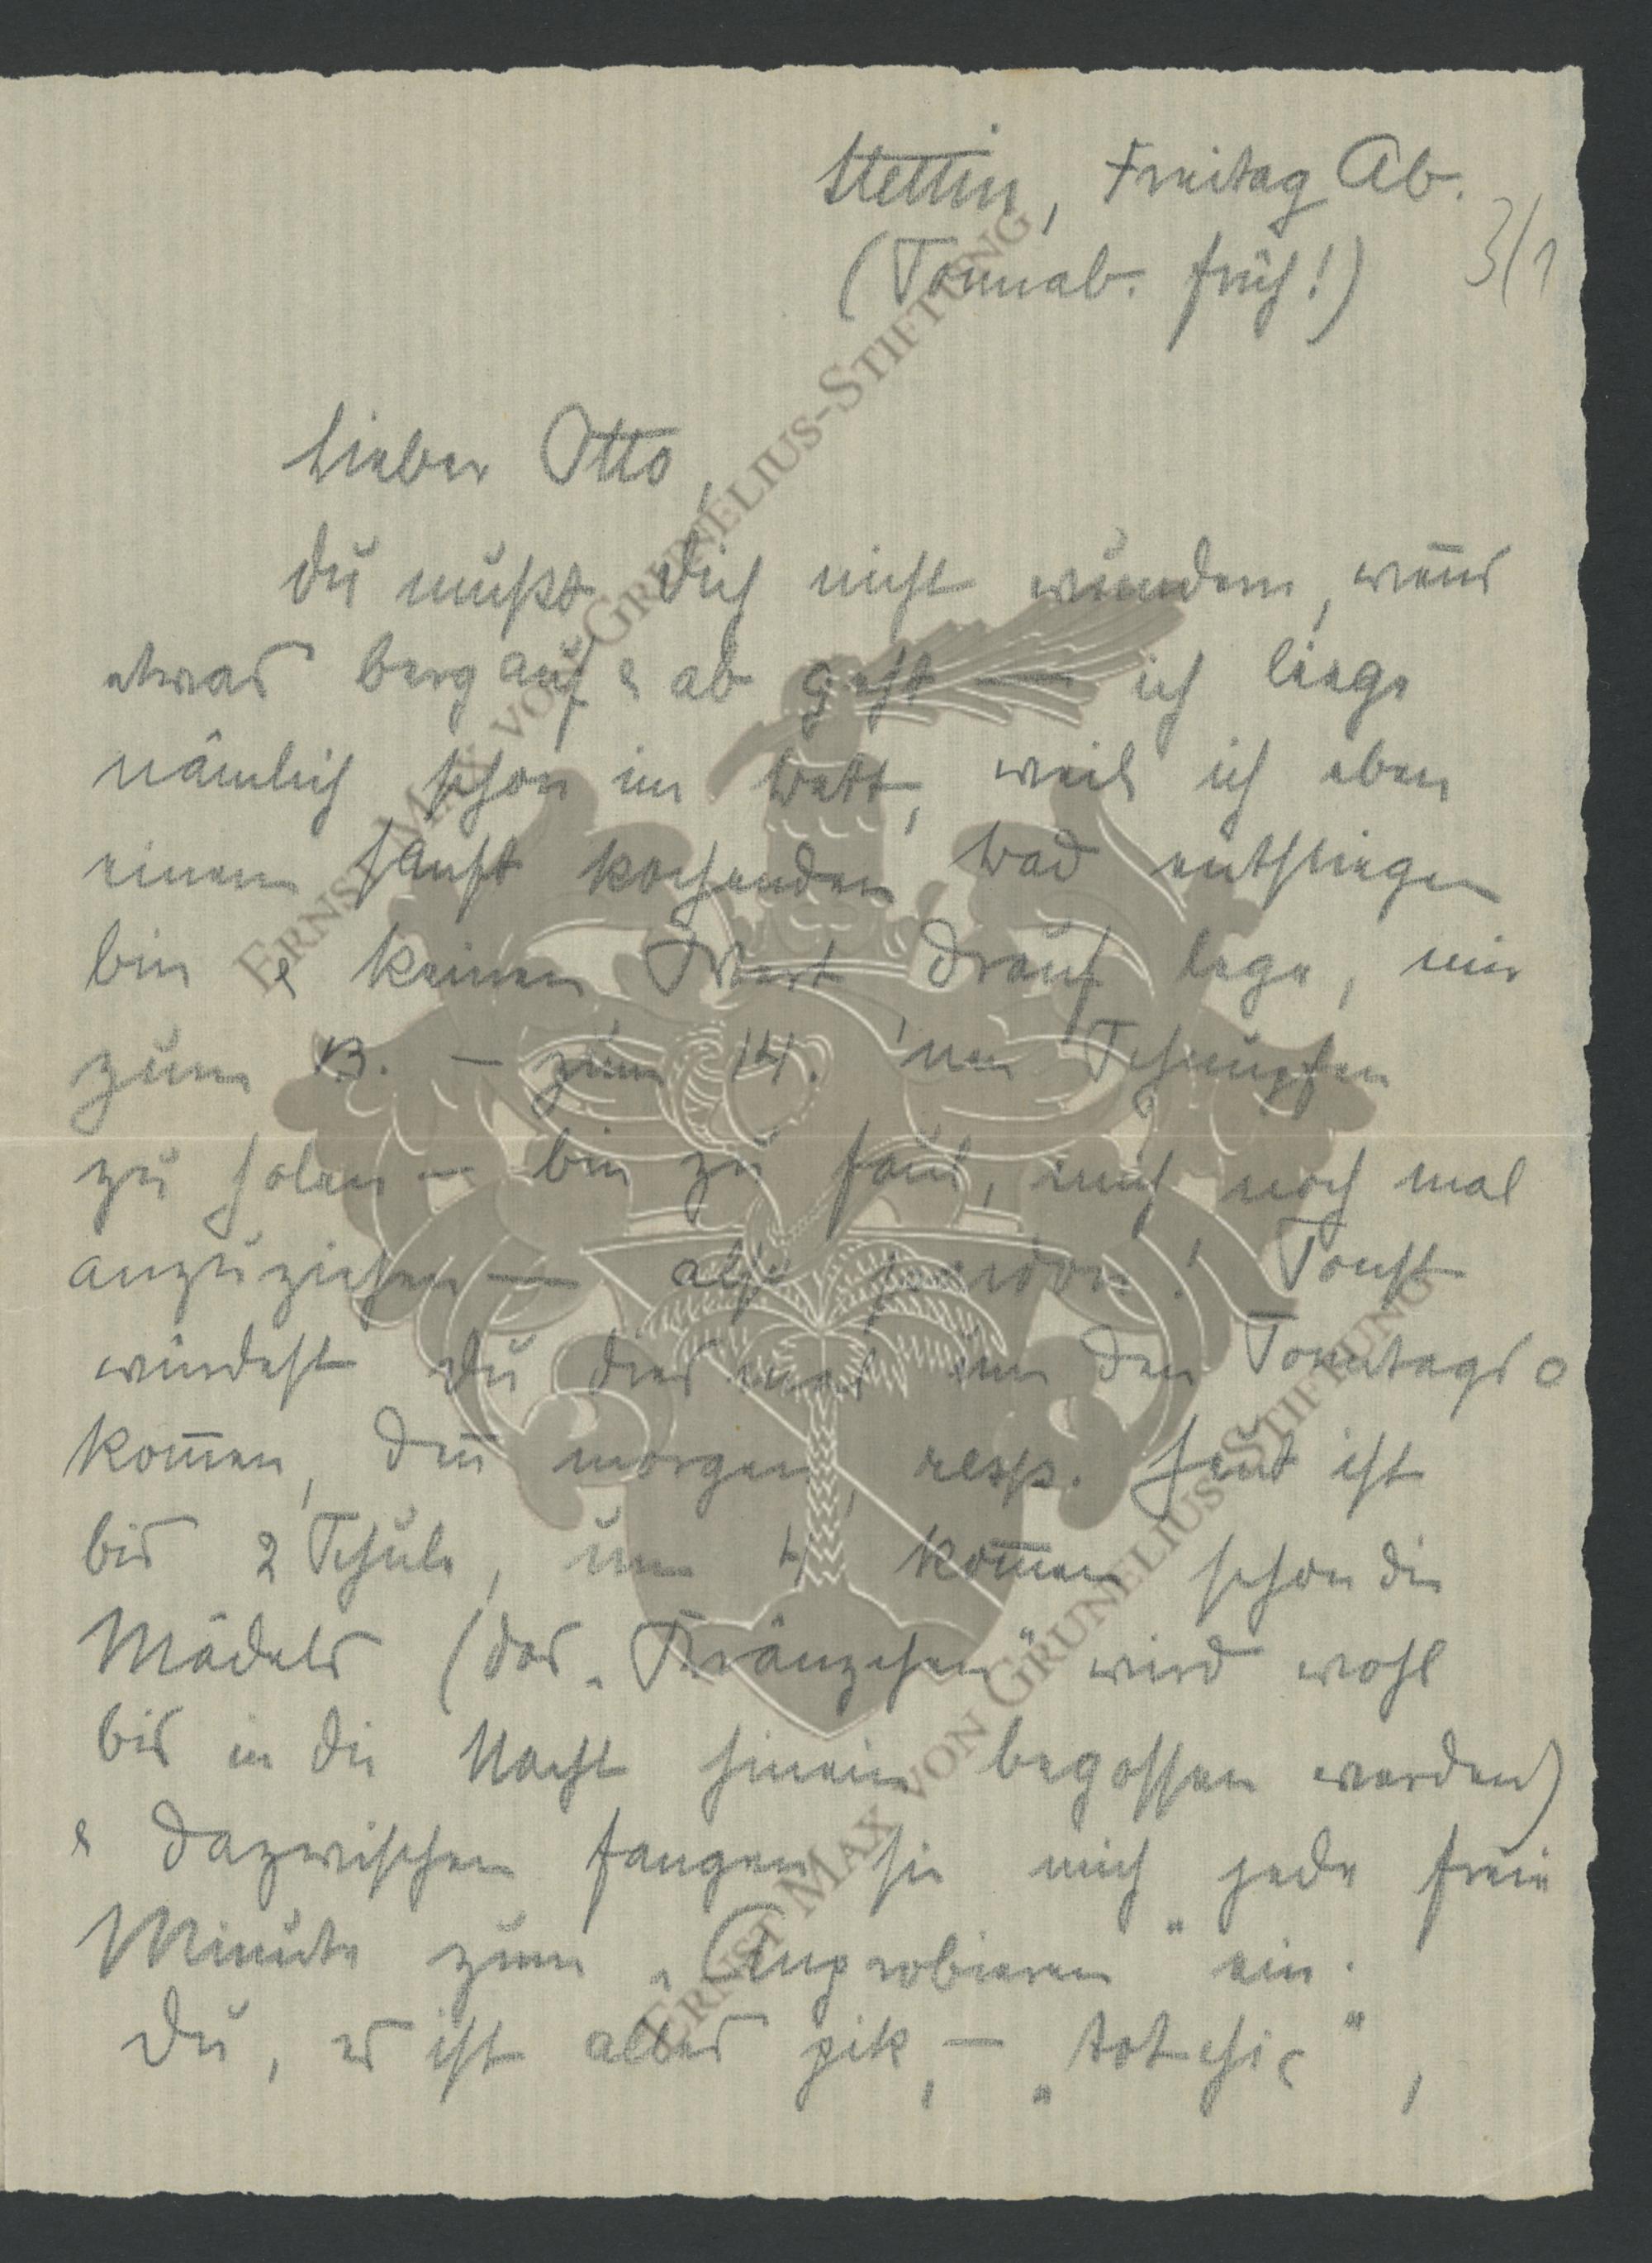 Stettin, Freitag Ab.
(Sonnab. früh!)
3/1
Lieber Otto,
Du mußt Dich nicht wundern, wenns
etwas bergauf & ab geht — ich liege
nämlich schon im Bett, weil ich eben
einem sanft kochenden Bad entstiegen
bin & keinen Wert drauf lege, mir
zum 13. – zum 14. 'nen Schnupfen
zu holen – bin zu faul, mich noch mal
anzuziehen — also pardon! Sonst
würdest Du dies mal um den Sonntags o
kom̅en, den̅ morgen, resp. heut ist
bis 2 Schule, um 4 kom̅en schon die
Mädels (das „Kränzchen" wird wohl
bis in die Nacht hinein begossen werden)
& dazwischen fangen sie mich jede freie
Minute zum „Anprobieren" ein.
Du, es ist alles pik, – „totchic",
ERNST MAX VON GRUNELIUS-STIFTUNG
ERNST MAX VON GRUNELIUS-STIFTUNG